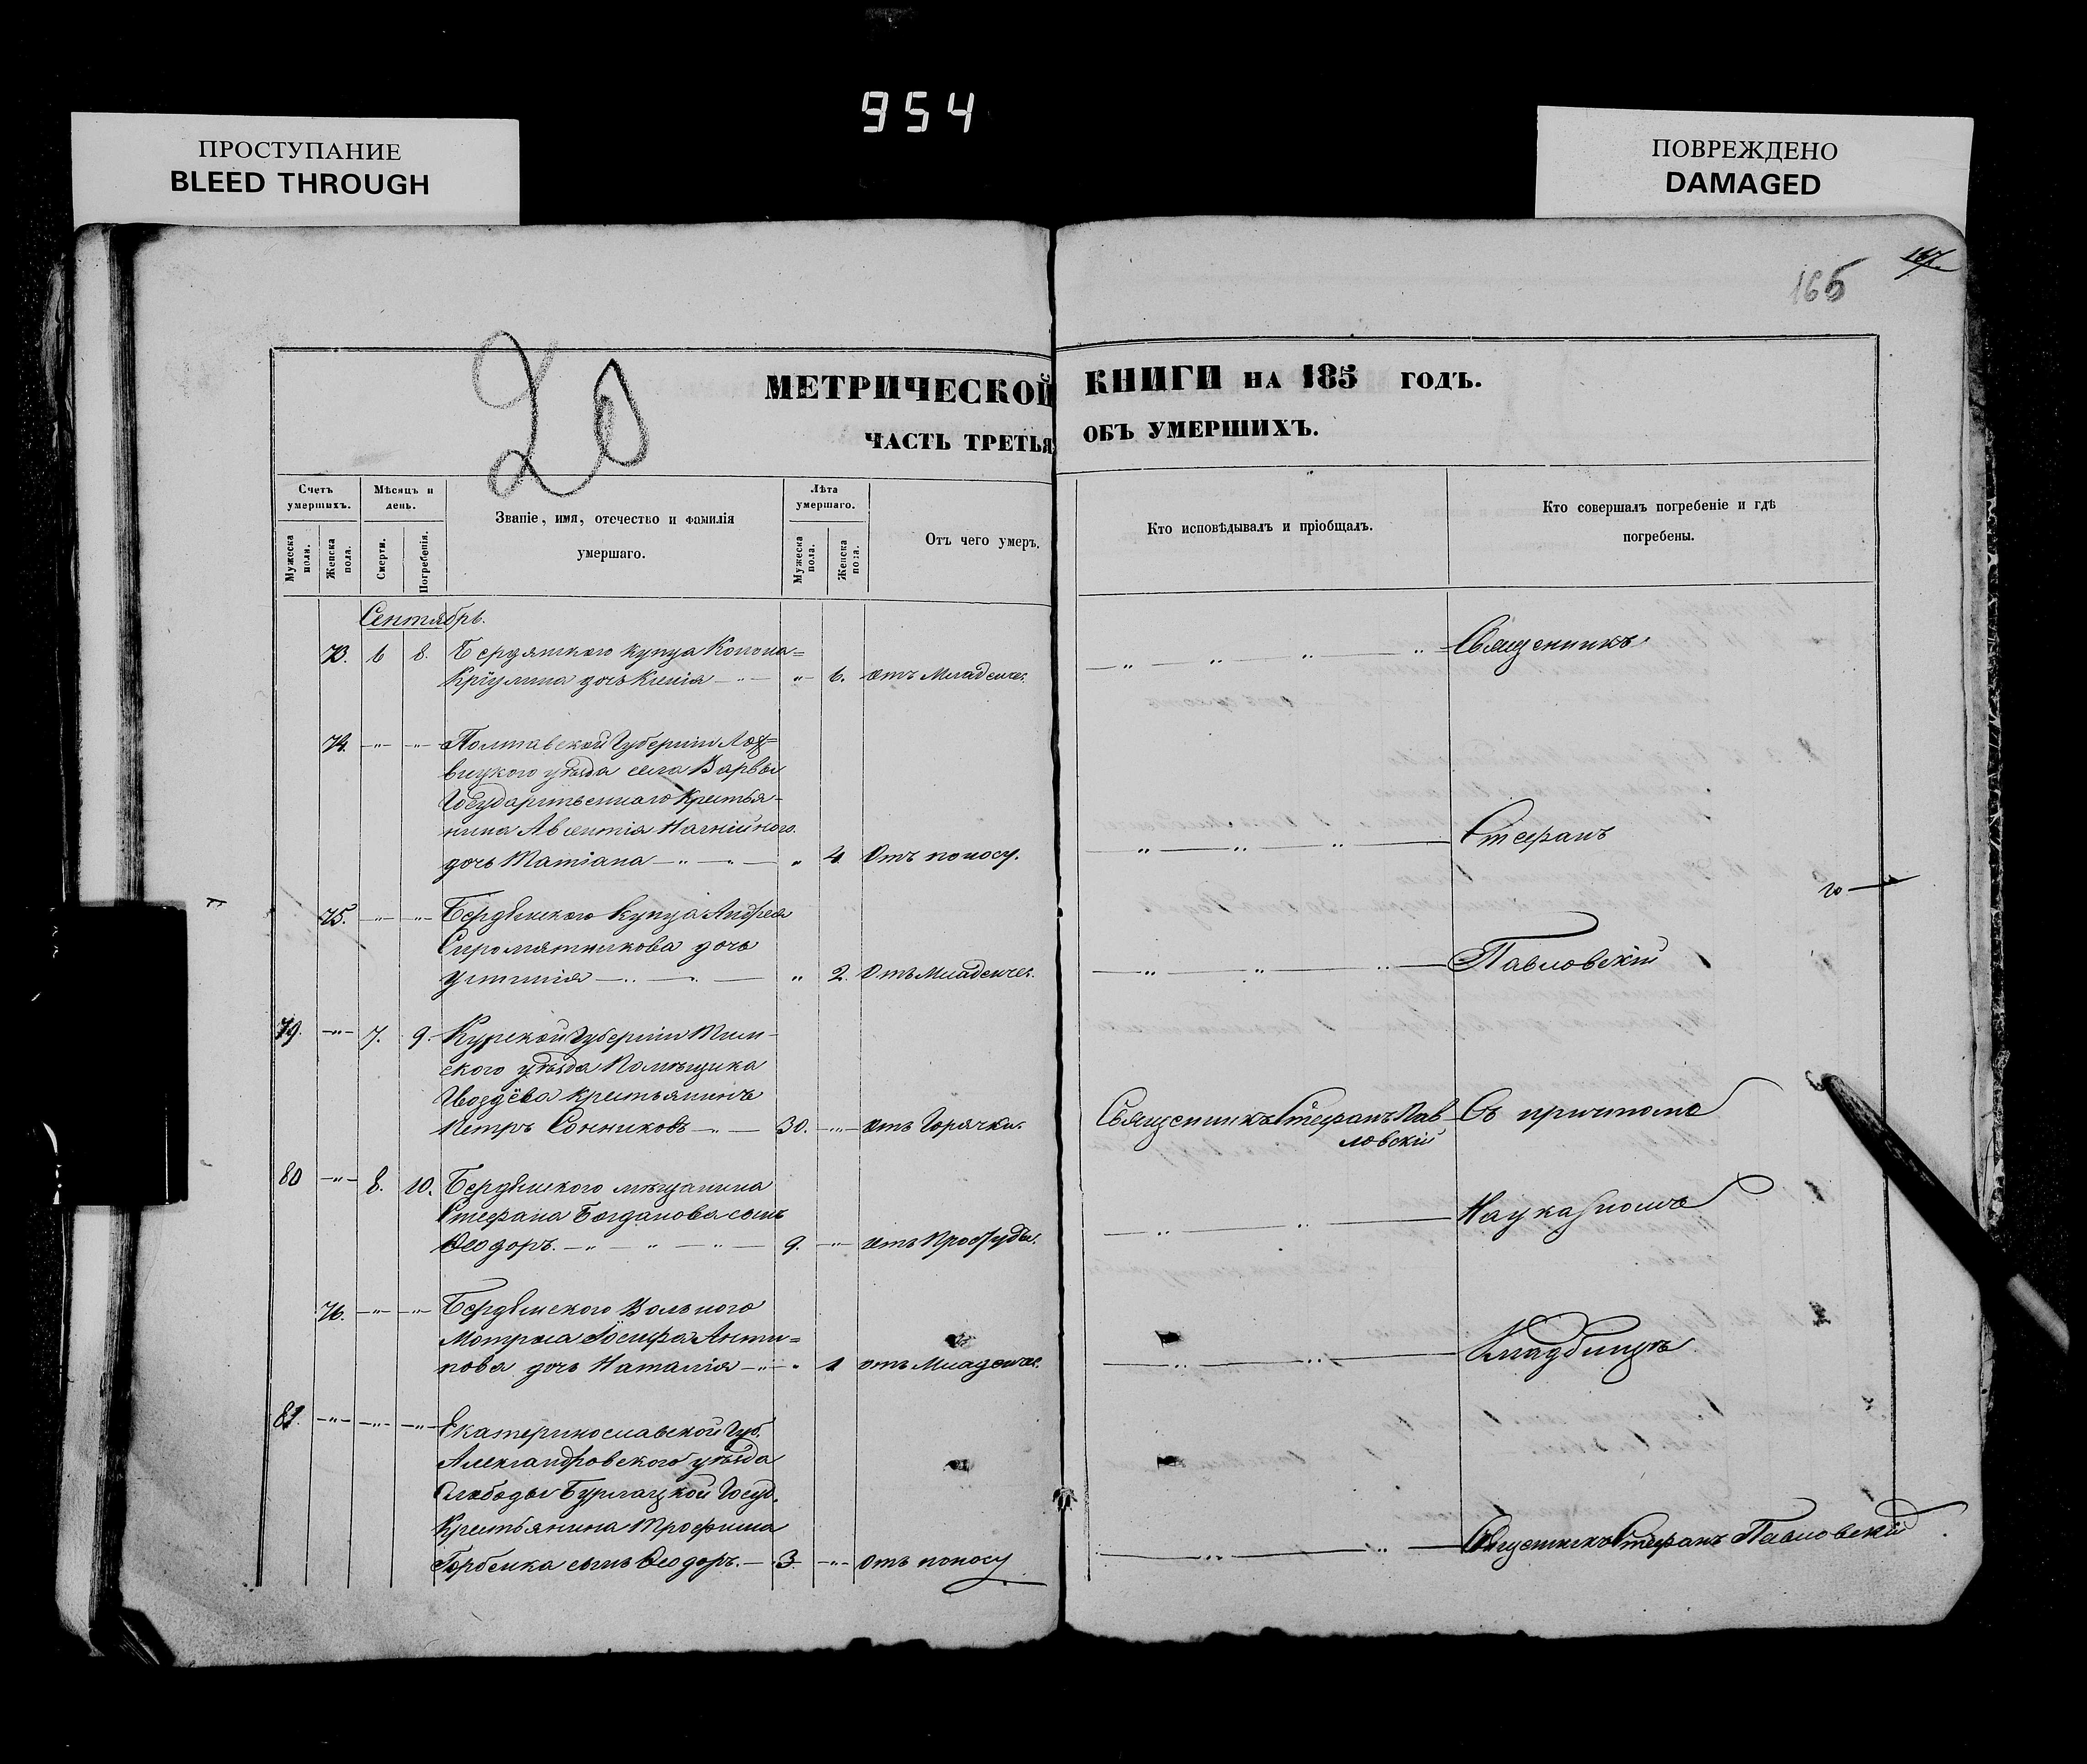 954
ПРОСТУПАНИЕ
BLEED THROUGH
ПОВРЕЖДЕНО
DAMAGED
167.
166
20
МЕТРИЧЕСКОЙ КНИГИ НА 185 ГОДЪ.
ЧАСТЬ ТРЕТЬЯ ОБЪ УМЕРШИХЪ.
Счетъ умершихъ.
Мужеска пола.
Женска пола.
Мѣсяцъ и день.
Смерти.
Погребенія.
Званіе, имя, отечество и фамилія умершаго.
Лѣта умершаго.
Мужеска пола.
Женска пола.
Отъ чего умеръ.
Кто исповѣдывалъ и пріобщалъ.
Кто совершалъ погребеніе и гдѣ погребены.
Сентябрь.
73. 6 8. Бердянского купца Конона= Священникъ
дочь Ксенія — " — " — 6. отъ Младенчес.
74. —"— —"— Полтавской Губерніи Лох=
вицкого уѣзда села Варвы
Государственнаго Крестья-
нина Авксентія
дочь Татіана — " — " — " 4 Отъ поносу. Стефанъ
75. —"— —"— Бердянского Купца Андрея
Сыромятникова дочь
Устинія — " — " — " 2. Отъ Младенчес. Павловскій
79. —"— 7. 9. Курской Губерніи Тим-
ского уѣзда Помѣщика
Гвоздёва крестьянинъ
Петръ Сонниковъ — " — 30. —"— отъ Горячки. Священникъ Стефанъ Пав Съ причтомъ
ловскій
80 —"— 8. 10. Бердянского мѣщанина
Стефана Богданова сынъ
Ѳеодоръ. — " — " — " — 9. —"— отъ Простуды. На
76. —"— —"— Бердянского Вольного
Матроса Іосифа Анти=
пова дочь Наталія — " — " 1 отъ Младенчес. Кладбищѣ
81. —"— —"— —"— Екатеринославской Губ.
Александровского уѣзда
Слободы Бурлацкой Госуд.
Крестьянина Трофима
Горбенка сынъ Ѳеодоръ. — 3. —"— Отъ поносу Священникъ Стефанъ Павловскій